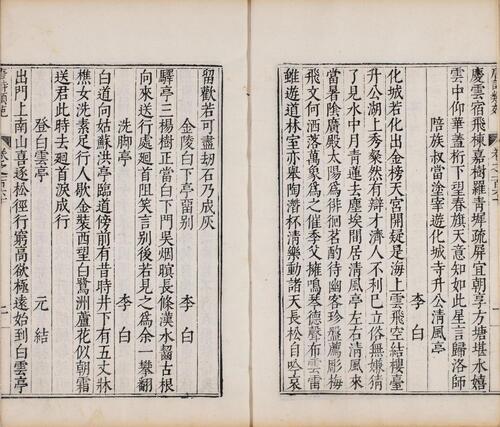 慶雲宿飛棟嘉樹羅青墀疏屏宜朝享方塘堪水嬉
雲中仰華蓋桁下望春旗天意知如此星言歸洛師
陪族叔當塗宰遊化城寺升公清風亭
李白
化城若化出金榜天宮開疑是海上雲飛空結樓臺
升公湖上秀粲然有辯才濟人不利己立俗無嫌猜
了見水中月青蓮去塵埃閒居清風亭左右清風來
當暑陰廣殿太陽為徘徊茗酌待幽客珍盤薦彫梅
飛文何洒落萬象為之催季父擁鳴琴德聲布雲雷
雖遊道林室亦舉陶潛杯清樂動諸天長松自吟哀
留歡若可盡劫石乃成灰
金陵白下亭畱別
李白
驛亭三楊樹正當白下門吳烟暝長條漢水齧古根
向來送行處迴首阻笑言別後若見之為余一攀翻
洗脚亭
李白
白道向姑蘇洪亭臨道傍前有昔時井下有五丈牀
樵女洗素足行人歇金裝西望白鷺洲蘆花似朝霜
送君此時去迴首淚成行
登白雲亭
元結
出門上南山喜逐松徑行窮高欲極遠始到白雲亭